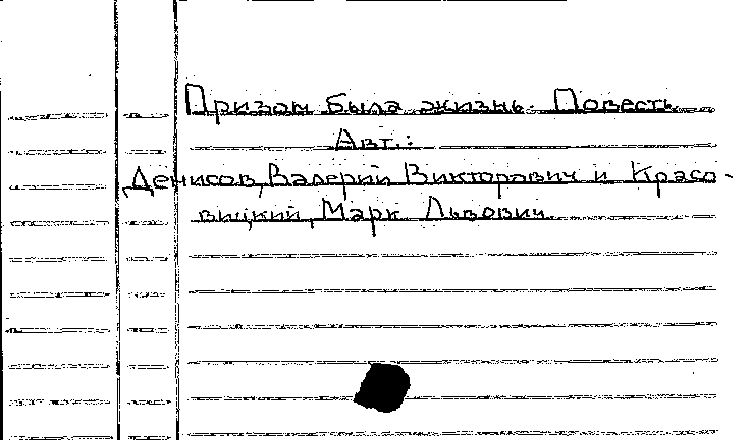 Призом была жизнь. Повесть.
Авт.:
Денисов, Валерий Викторович и Красо-
вицкий, Марк Львович.